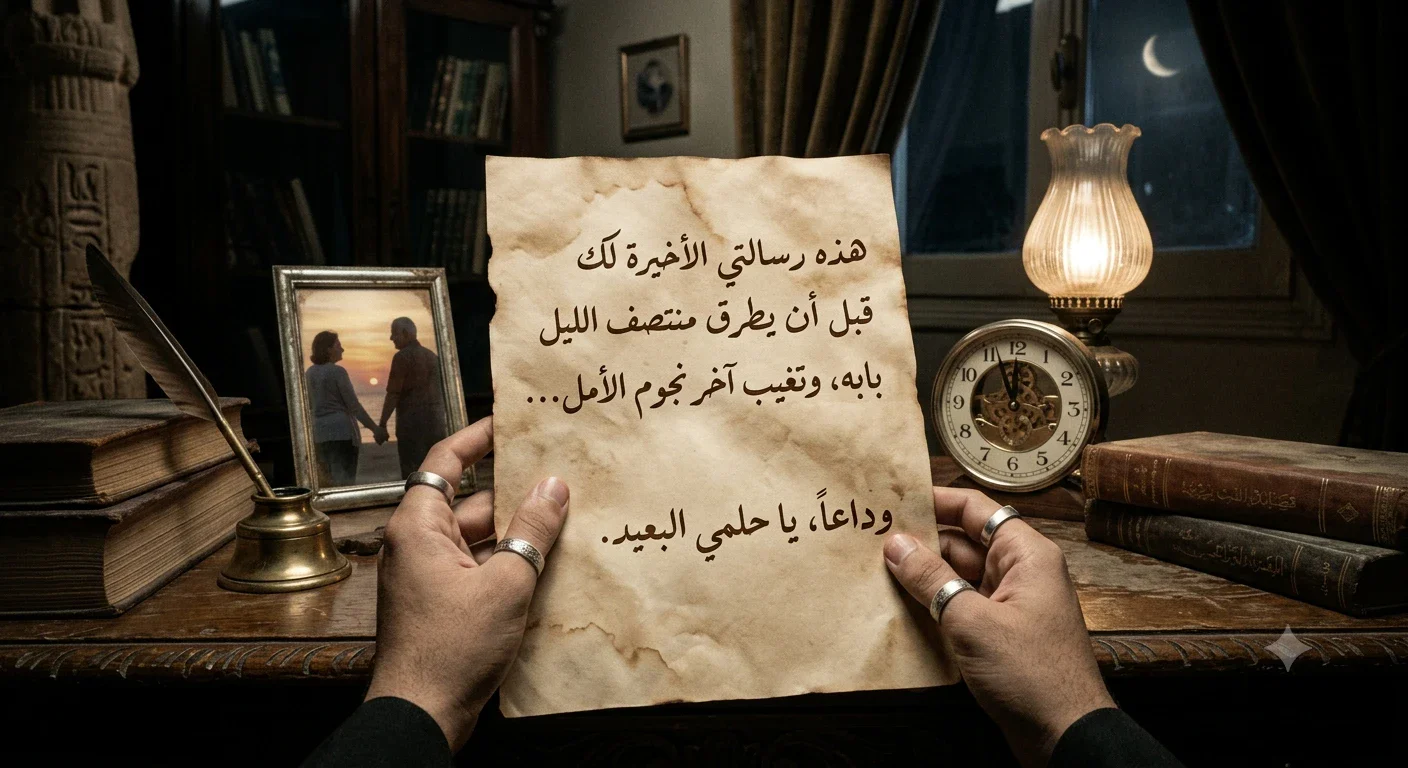 هذه رسالتي الأخيرة لك
قبل أن يطرق منتصف الليل
بابه، وتغيب آخر نجوم الأمل...
وداعاً، يا حلمي البعيد.
11 12 1
10 2
9 3
8 4
7 6 5